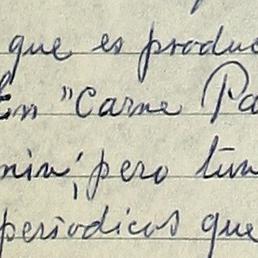 que es produc
En "Carne Pa
min; pero tun
periodicos que